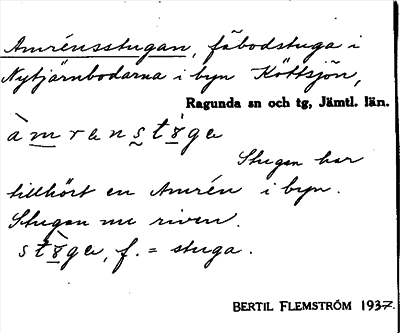 Amrénsstugan, fäbodstuga i
Nytjärnbodarna i byn Köttsjön,
Ragunda sn och tg, Jämtl. län.
àmrenstö̀ga
Stugan har
tillhört en Amrén i byn.
Stugan nu riven.
stö̀ga, f. = stuga.
BERTIL FLEMSTRÖM 1937.